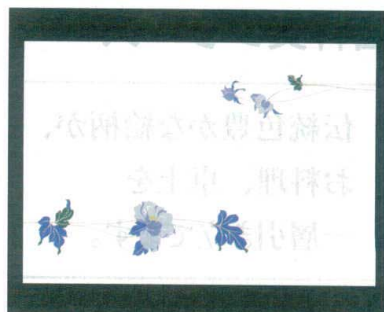 伝統色豊かな絵柄が、
お料理、卓上を
一層引き立てます。